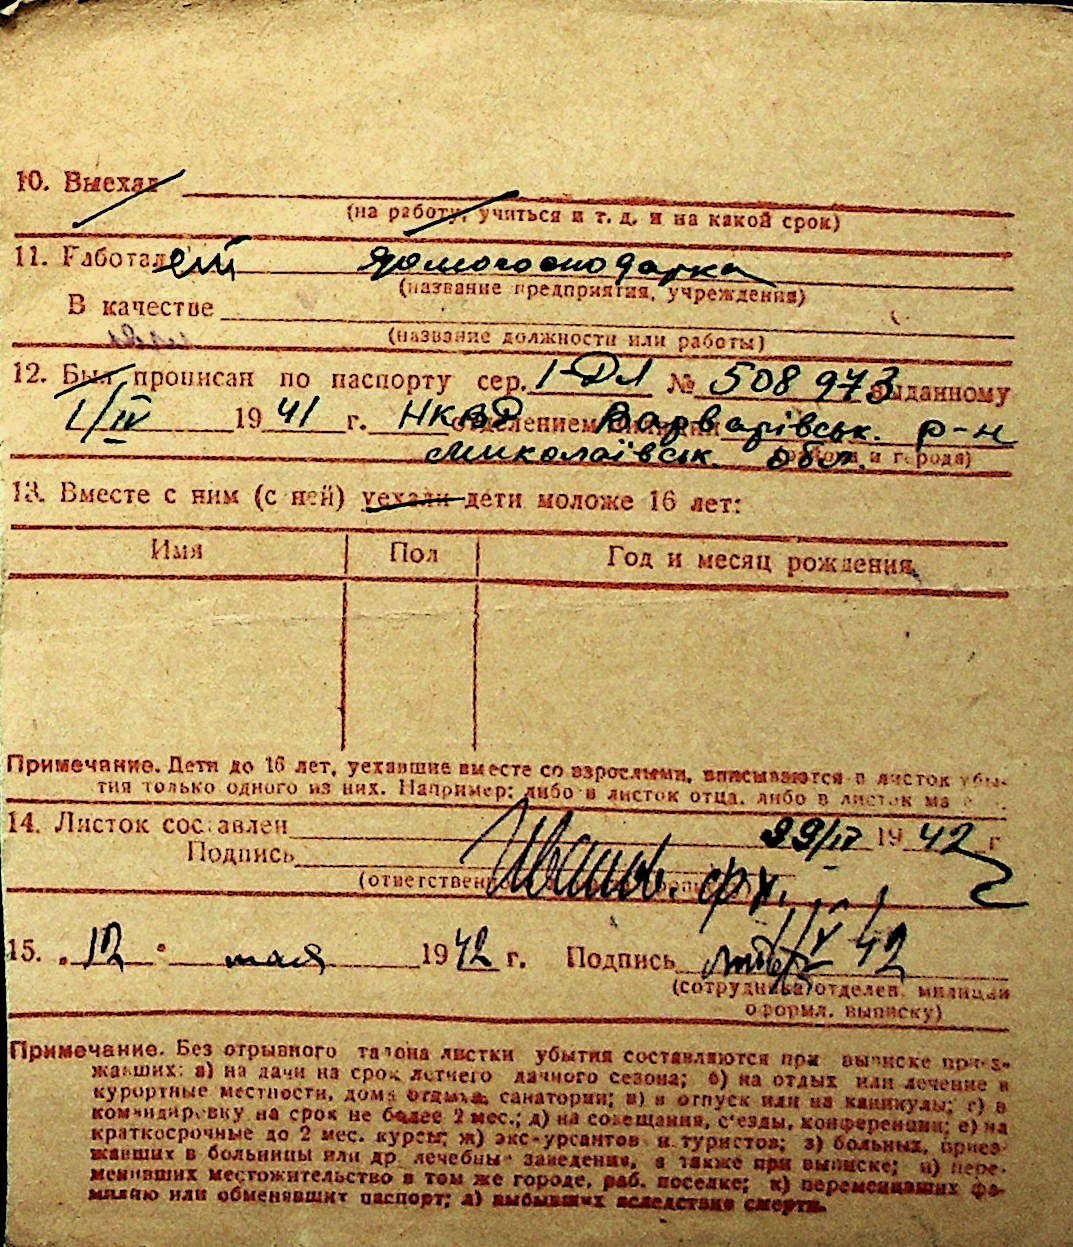 10. Выехал
(на работу, учиться и т. д. и на какой срок)
11. Работал домогосподарка
(название предприятия, учреждения)
В качестве
(название должности или работы)
12. Был прописан по паспорту сер. І-ДЛ № 508973 выданному
1/IV 19 41 г. НКВД отделением милиции Варварівськ. р-н
Миколаївськ. обл. (района и города)
13. Вместе с ним (с ней) уехали дети моложе 16 лет:
Имя Пол Год и месяц рождения
Примечание. Дети до 16 лет, уехавшие вместе со взрослыми, вписываются в листок убы-
тия только одного из них. Например: либо в листок отца, либо в листок ма
14. Листок составлен 29/IV 19 42 г
Подпись
(ответственн
15. „12" мая 19 42 г. Подпись 42
(сотрудника отделен. милиции
оформл. выписку)
Примечание. Без отрывного талона листки убытия составляются при выписке приез-
жавших: а) на дачи на срок летнего дачного сезона; б) на отдых или лечение в
курортные местности, дома отдыха, санатории; в) в отпуск или на каникулы; г) в
командировку на срок не более 2 мес.; д) на совещания, с'езды, конференции; е) на
краткосрочные до 2 мес. курсы; ж) экс-урсантов и туристов; з) больных, приез-
жавших в больницы или др. лечебны- заведения, а также при выписке; и) пере-
менивших местожительство в том же городе, раб. поселке; к) переменивших фа-
милию или обменявшит паспорт; л) выбывших вследствие смерти.